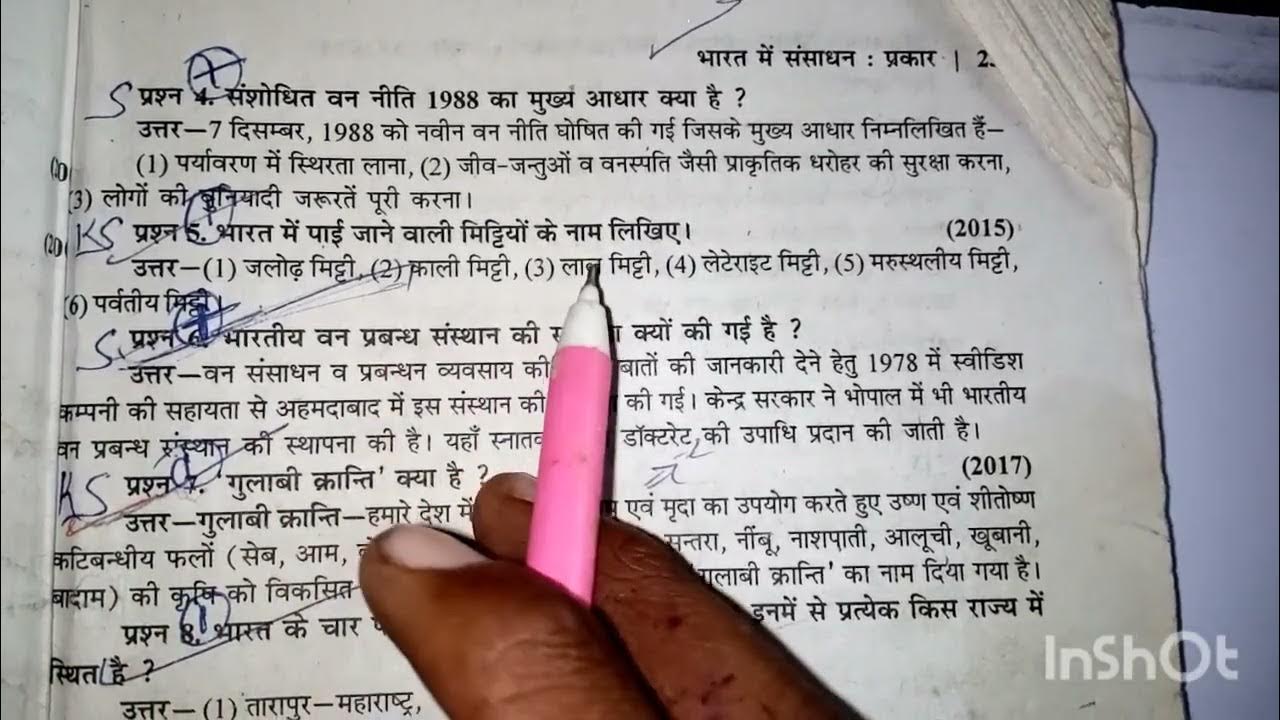 भारत में संसाधन : प्रकार | 2
S प्रश्न 4. संशोधित वन नीति 1988 का मुख्य आधार क्या है ?
उत्तर—7 दिसम्बर, 1988 को नवीन वन नीति घोषित की गई जिसके मुख्य आधार निम्नलिखित हैं—
(1) पर्यावरण में स्थिरता लाना, (2) जीव-जन्तुओं व वनस्पति जैसी प्राकृतिक धरोहर की सुरक्षा करना,
(3) लोगों की बुनियादी जरूरतें पूरी करना।
KS प्रश्न 5. भारत में पाई जाने वाली मिट्टियों के नाम लिखिए। (2015)
उत्तर—(1) जलोढ़ मिट्टी, (2) काली मिट्टी, (3) लाल मिट्टी, (4) लेटेराइट मिट्टी, (5) मरुस्थलीय मिट्टी,
(6) पर्वतीय मिट्टी।
S प्रश्न 6. भारतीय वन प्रबन्ध संस्थान की क्यों की गई है ?
उत्तर—वन संसाधन व प्रबन्धन व्यवसाय की बातों की जानकारी देने हेतु 1978 में स्वीडिश
कम्पनी की सहायता से अहमदाबाद में इस संस्थान की की गई। केन्द्र सरकार ने भोपाल में भी भारतीय
वन प्रबन्ध संस्थान की स्थापना की है। यहाँ डॉक्टरेट की उपाधि प्रदान की जाती है।
KS प्रश्न 7. 'गुलाबी क्रान्ति' क्या है ? (2017)
उत्तर—गुलाबी क्रान्ति—हमारे देश में एवं मृदा का उपयोग करते हुए उष्ण एवं शीतोष्ण
कटिबन्धीय फलों (सेब, आम, सन्तरा, नींबू, नाशपाती, आलूची, खूबानी,
बादाम) की कृषि को विकसित क्रान्ति' का नाम दिया गया है।
प्रश्न 8. भारत के चार इनमें से प्रत्येक किस राज्य में
स्थित है ?
उत्तर—(1) तारापुर—महाराष्ट्र,
InShOt